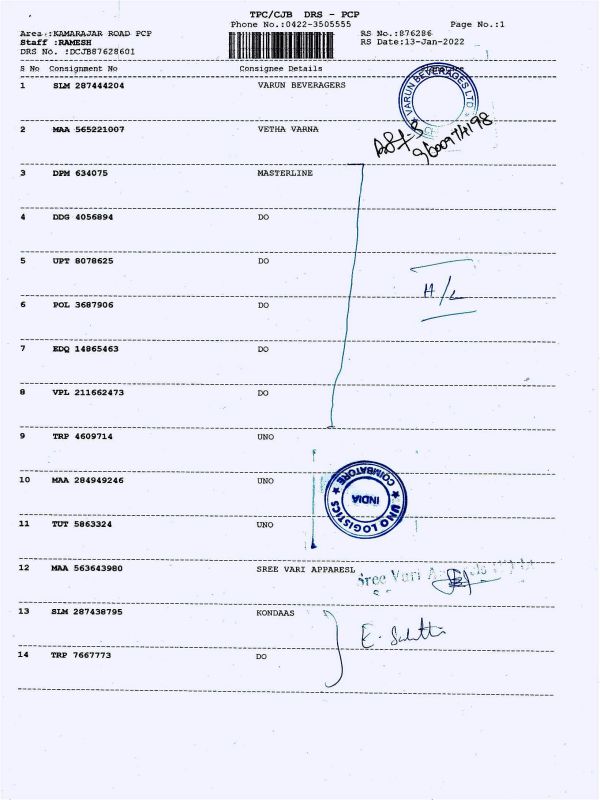 TPC/CJB DRS - PCP
Phone No.:0422-3505555 Page No.:1
Area :KAMARAJAR ROAD PCP RS No.:876286
Staff :RAMESH RS Date:13-Jan-2022
DRS No. :DCJB87628601
S No Consignment No Consignee Details
1 SLM 287444204 VARUN BEVERAGERS
VARUN BEVERAGES LTD
2 MAA 565221007 VETHA VARNA
3 DPM 634075 MASTERLINE
4 DDG 4056894 DO
5 UPT 8078625 DO
H/L
6 POL 3687906 DO
7 EDQ 14865463 DO
8 VPL 211662473 DO
9 TRP 4609714 UNO
10 MAA 284949246 UNO
UNO LOGISTICS
COIMBATORE
INDIA
11 TUT 5863324 UNO
12 MAA 563643980 SREE VARI APPARESL
Sree Vari
13 SLM 287438795 KONDAAS
14 TRP 7667773 DO